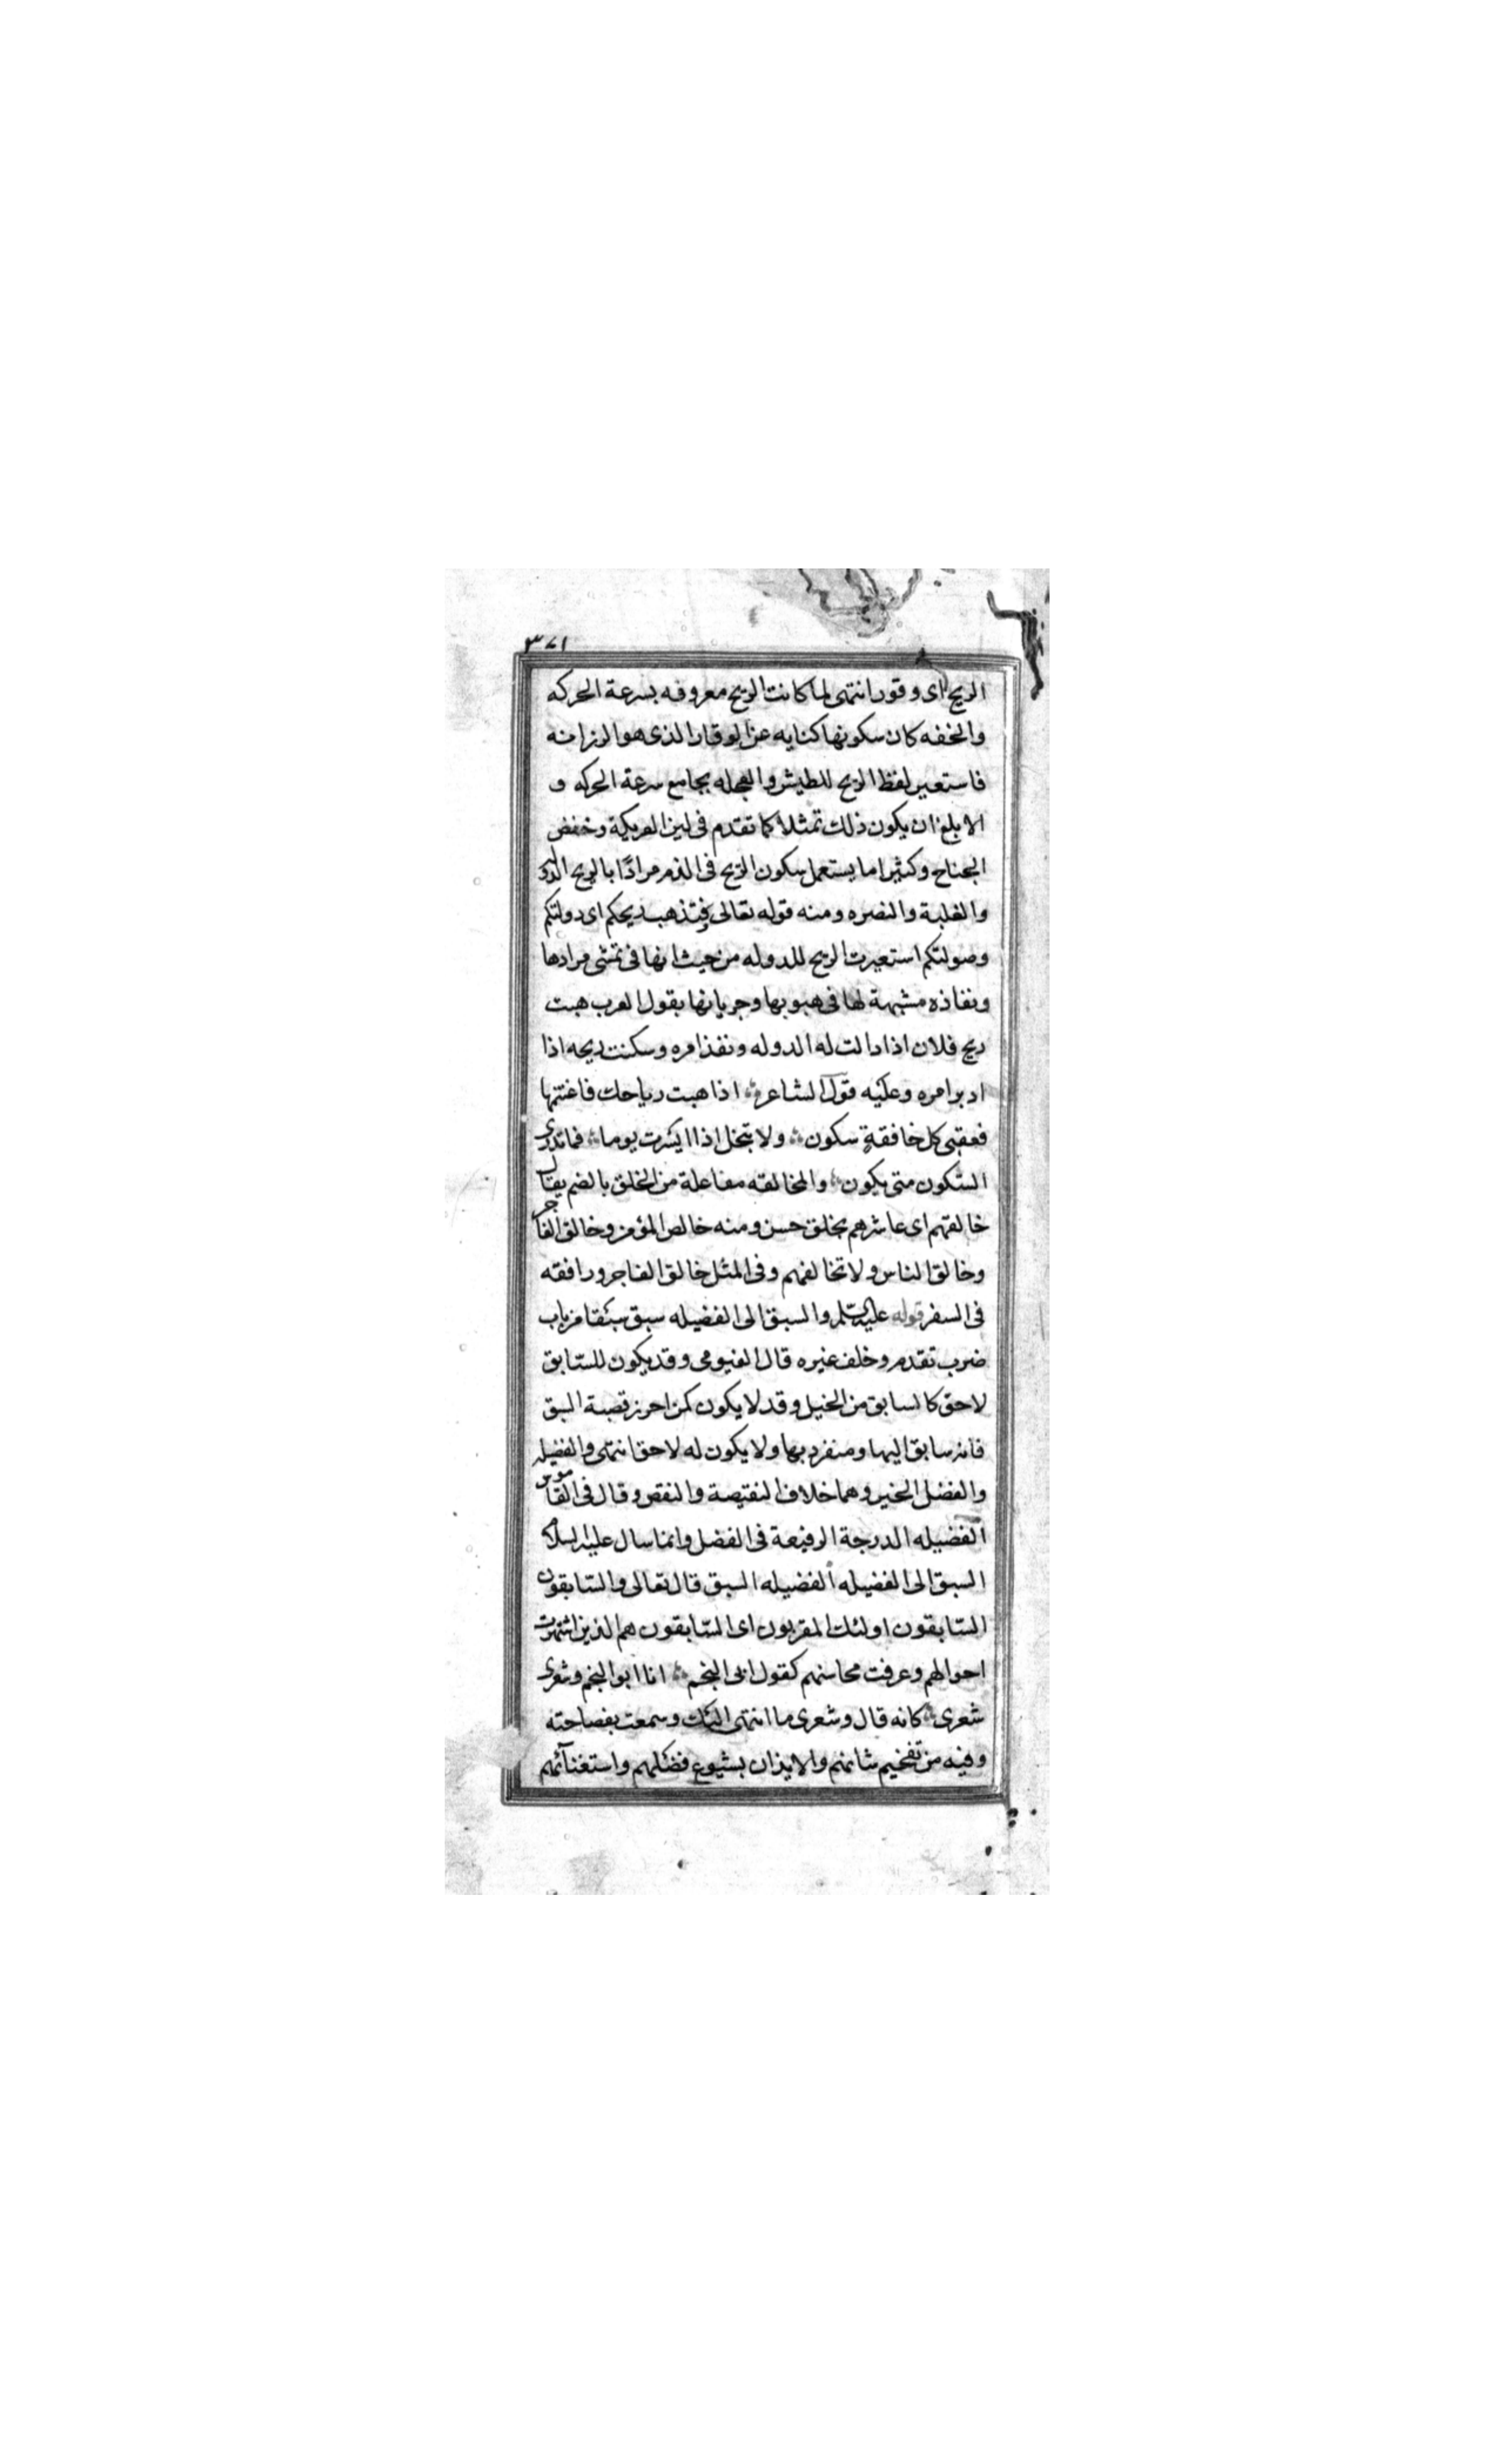 ٣٧١
الريح اى وقور انتهى لما كانت الريح معروفه بسرعة الحركه
والخفه كان سكونها كنايه عن الوقار الذى هو الرزانه
فاستعير لفظ الريح للطيش والعجله بجامع سرعة الحركه و
الابلغ ان يكون ذلك تمثلا كما تقدم فى لين العريكة وخفض
الجناح وكثيرا ما يستعمل سكون الريح فى الذم مرادًا بالريح الدو
والغلبة والنصره ومنه قوله تعالى فتذهب ريحكم اى دولتكم
وصولتكم استعيرت الريح للدوله من حيث انها فى تمشى مرادها
ونفاذه مشبهة لها فى هبوبها وجريانها يقول العرب هبت
ريح فلان اذا دالت له الدوله ونفذ امره وسكنت ريحه اذا
ادبر امره وعليه قول الشاعر اذا هبت رياحك فاغتنمها
فعقبى كل خافقةٍ سكون ولا تبخل اذا ايسرت يوما فما تدرى
السّكون متى يكون والمخالقه مفاعلة من الخلق بالضم يقال
خالقهم اى عاشرهم بخلق حسن ومنه خالص المؤمن وخالق الفاجر
وخالق الناس ولا تخالفهم وفى المثل خالق الفاجر ورافقه
فى السفر قوله عليه السّلم والسبق الى الفضيله سبق سبقا من باب
ضرب تقدم وخلف غيره قال الفيومى وقد يكون للسّابق
لاحق كالسابق من الخيل وقد لا يكون كمن احرز قصبة السبق
فانه سابق اليها ومنفرد بها ولا يكون له لاحق انتهى والفضيله
والفضل الخير وهما خلاف النقيصة والنقص وقال فى القاموس
الفضيله الدرجة الرفيعة فى الفضل وانما سال عليه السلام
السبق الى الفضيله الفضيله السبق قال تعالى والسّابقون
السّابقون اولئك المقربون اى السّابقون هم الذين اشتهرت
احوالهم وعرفت محاسنهم كقول ابى النجم انا ابو النجم وشعرى
شعرى كانه قال وشعرى ما انتهى اليك وسمعت بفصاحته
وفيه من تفخيم شانهم والايذان بشيوع فضلهم واستغنآئهم